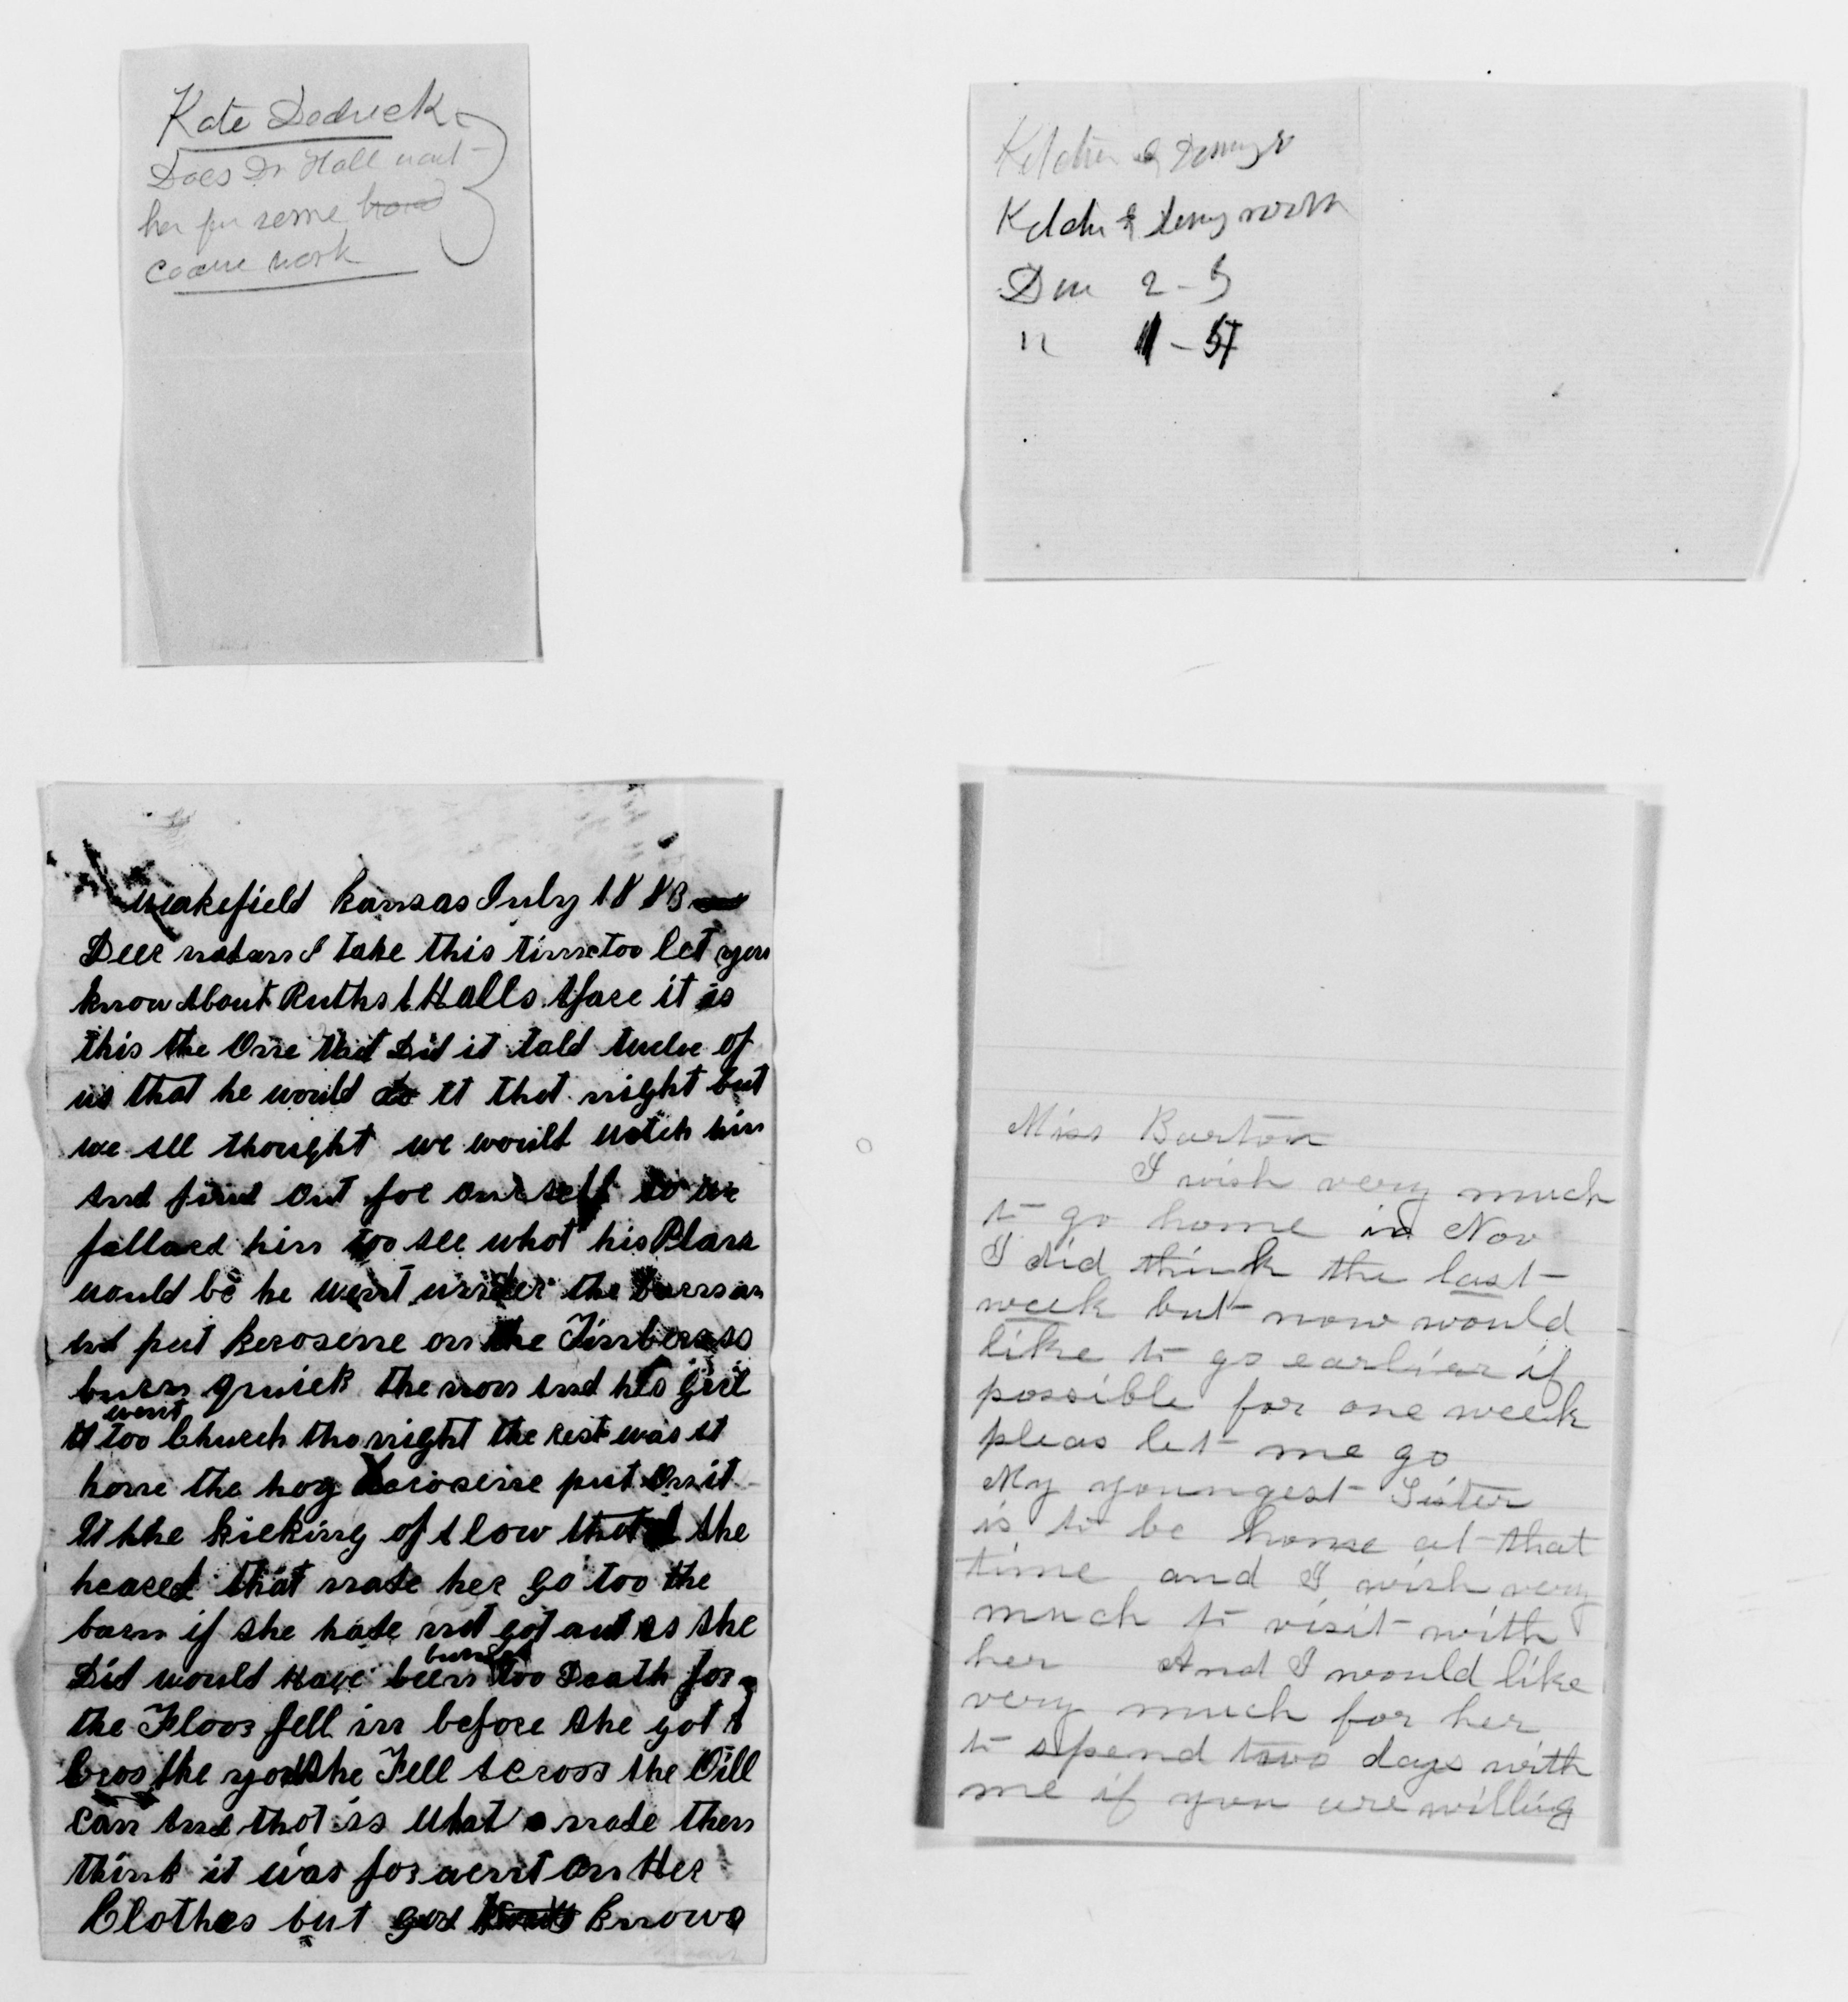 Kate Dedrick
Does Dr Hall want
her for some
coarse work
Kitchen &
Kitchen & dining room
Din 2 - 5
" 1 - 5
Wakefield Kansas July 1883
Deer madam I take this time too let you
know About Ruths A Halls Afare it is
this the One that Did it told twelve of
us that he would do it that night but
we all thought we would watch him
And find Out for ourself so we
follared him too see what his Plans
would be he went under the barn an
and put Kerosene on the Timbers so
burn quick the mon and his girl
went
too Church tho night the rest was at
home the hog Kerosene put On it
At the kicking of A low that the
heared that made her go too the
barn if she hade not got out as she
burned
Did would Have been too Death for
the Floor fell in before she got A
Cros the yord she Fell Across the Oill
can And that is What made them
think it was for aernt On Her
Clothes but god Knows
Miss Barton
I wish very much
to go home in Nov
I did think the last
week but now would
like to go earlier if
possible for one week
pleas let me go
My youngest Sister
is to be home at that
time and I wish very
much to visit with
her And I would like
very much for her
to spend two days with
me if you are willing